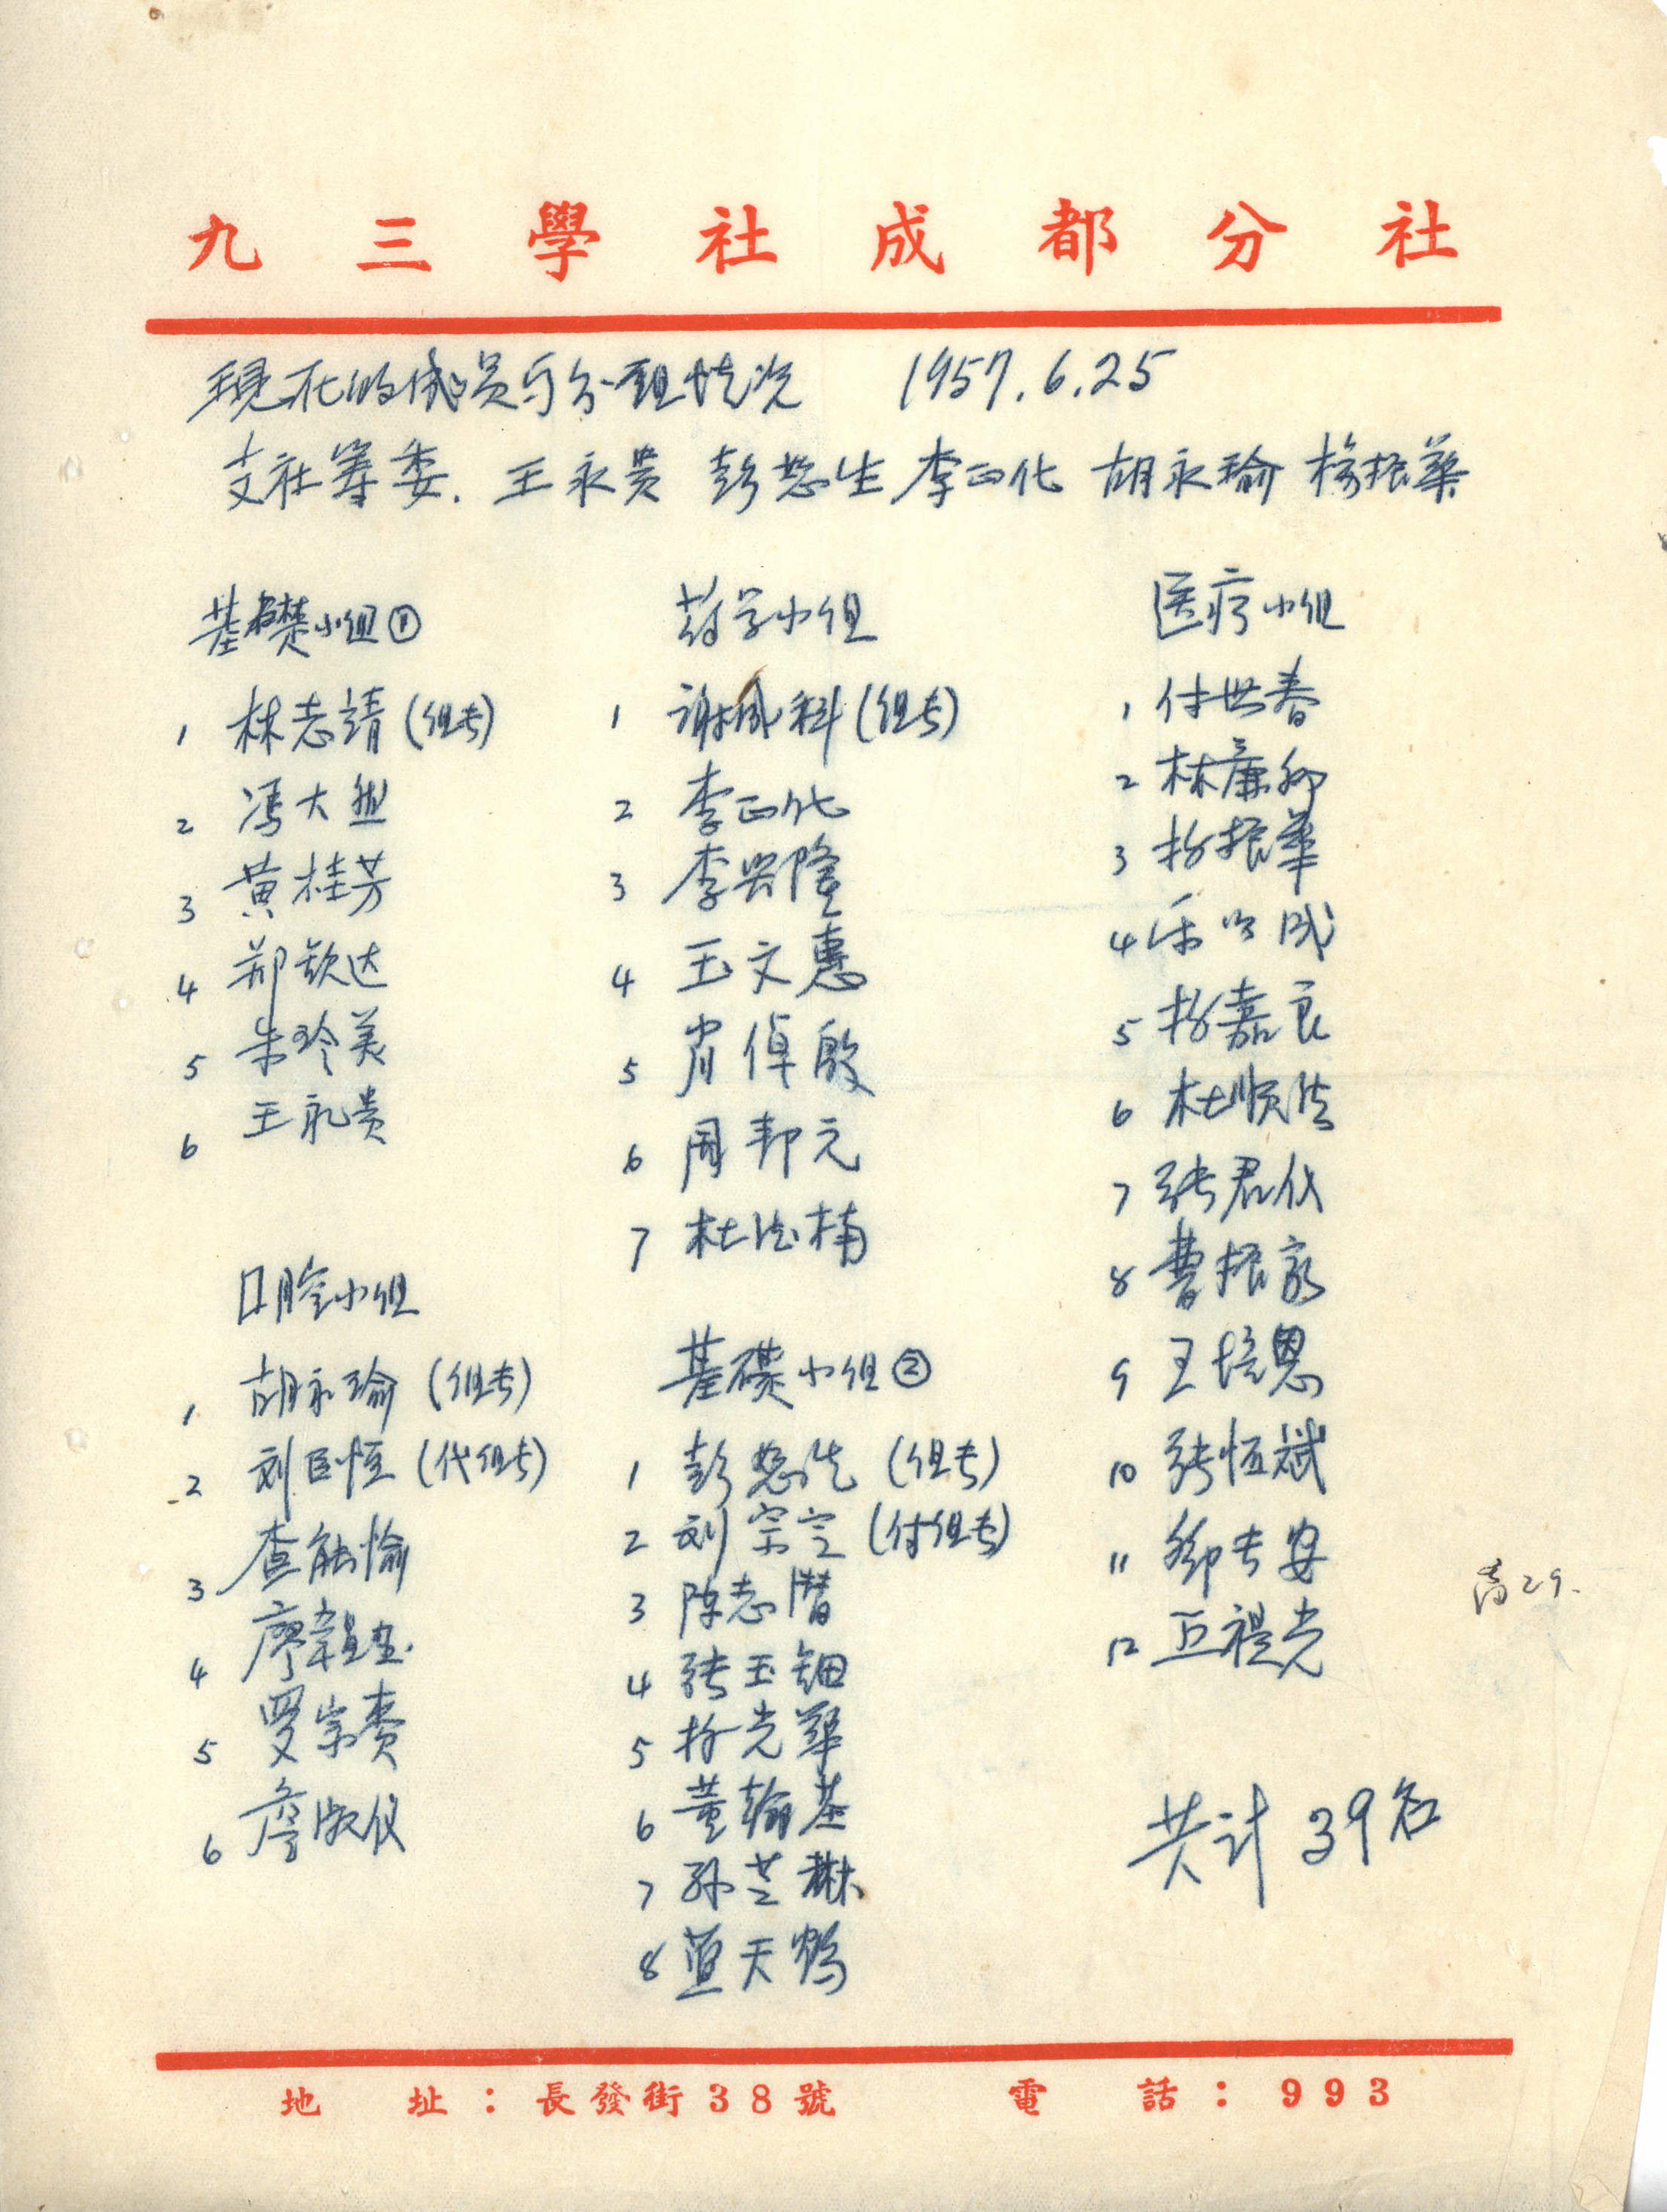 九三學社成都分社
现在的成员与分组情况 1957.6.25
支社筹委. 王永贵 彭恕生 李正化 胡永瑜 杨振華
基礎小组①
1 林志靖(组长)
2 冯大然
3 黄桂芳
4 郑钦达
5 朱玲美
6 王永贵
口腔小组
1. 胡永瑜(组长)
2 刘臣恒(代组长)
3 查能愉
4 廖韞玉
5 罗宗赉
6 詹淑仪
药学小组
1 谢成科(组长)
2 李正化
3 李兴隆
4 王文惠
5 肖倬殷
6 周邦元
7 杜德楠
基礎小组②
1 彭恕生(组长)
2 刘宗定(付组长)
3 陈志潜
4 张玉钿
5 杨光華
6 董翰基
7 孙芝琳
8 蓝天鹤
医疗小组
1 付世春
2 林廉卿
3 杨振華
4 成
5 杨嘉良
6 杜顺德
7 张君仪
8 曹振家
9 王培恩
10 张恒斌
11 邹长安
12 丘褆光
29.
共计 39名
地址:長發街38號 電話:993